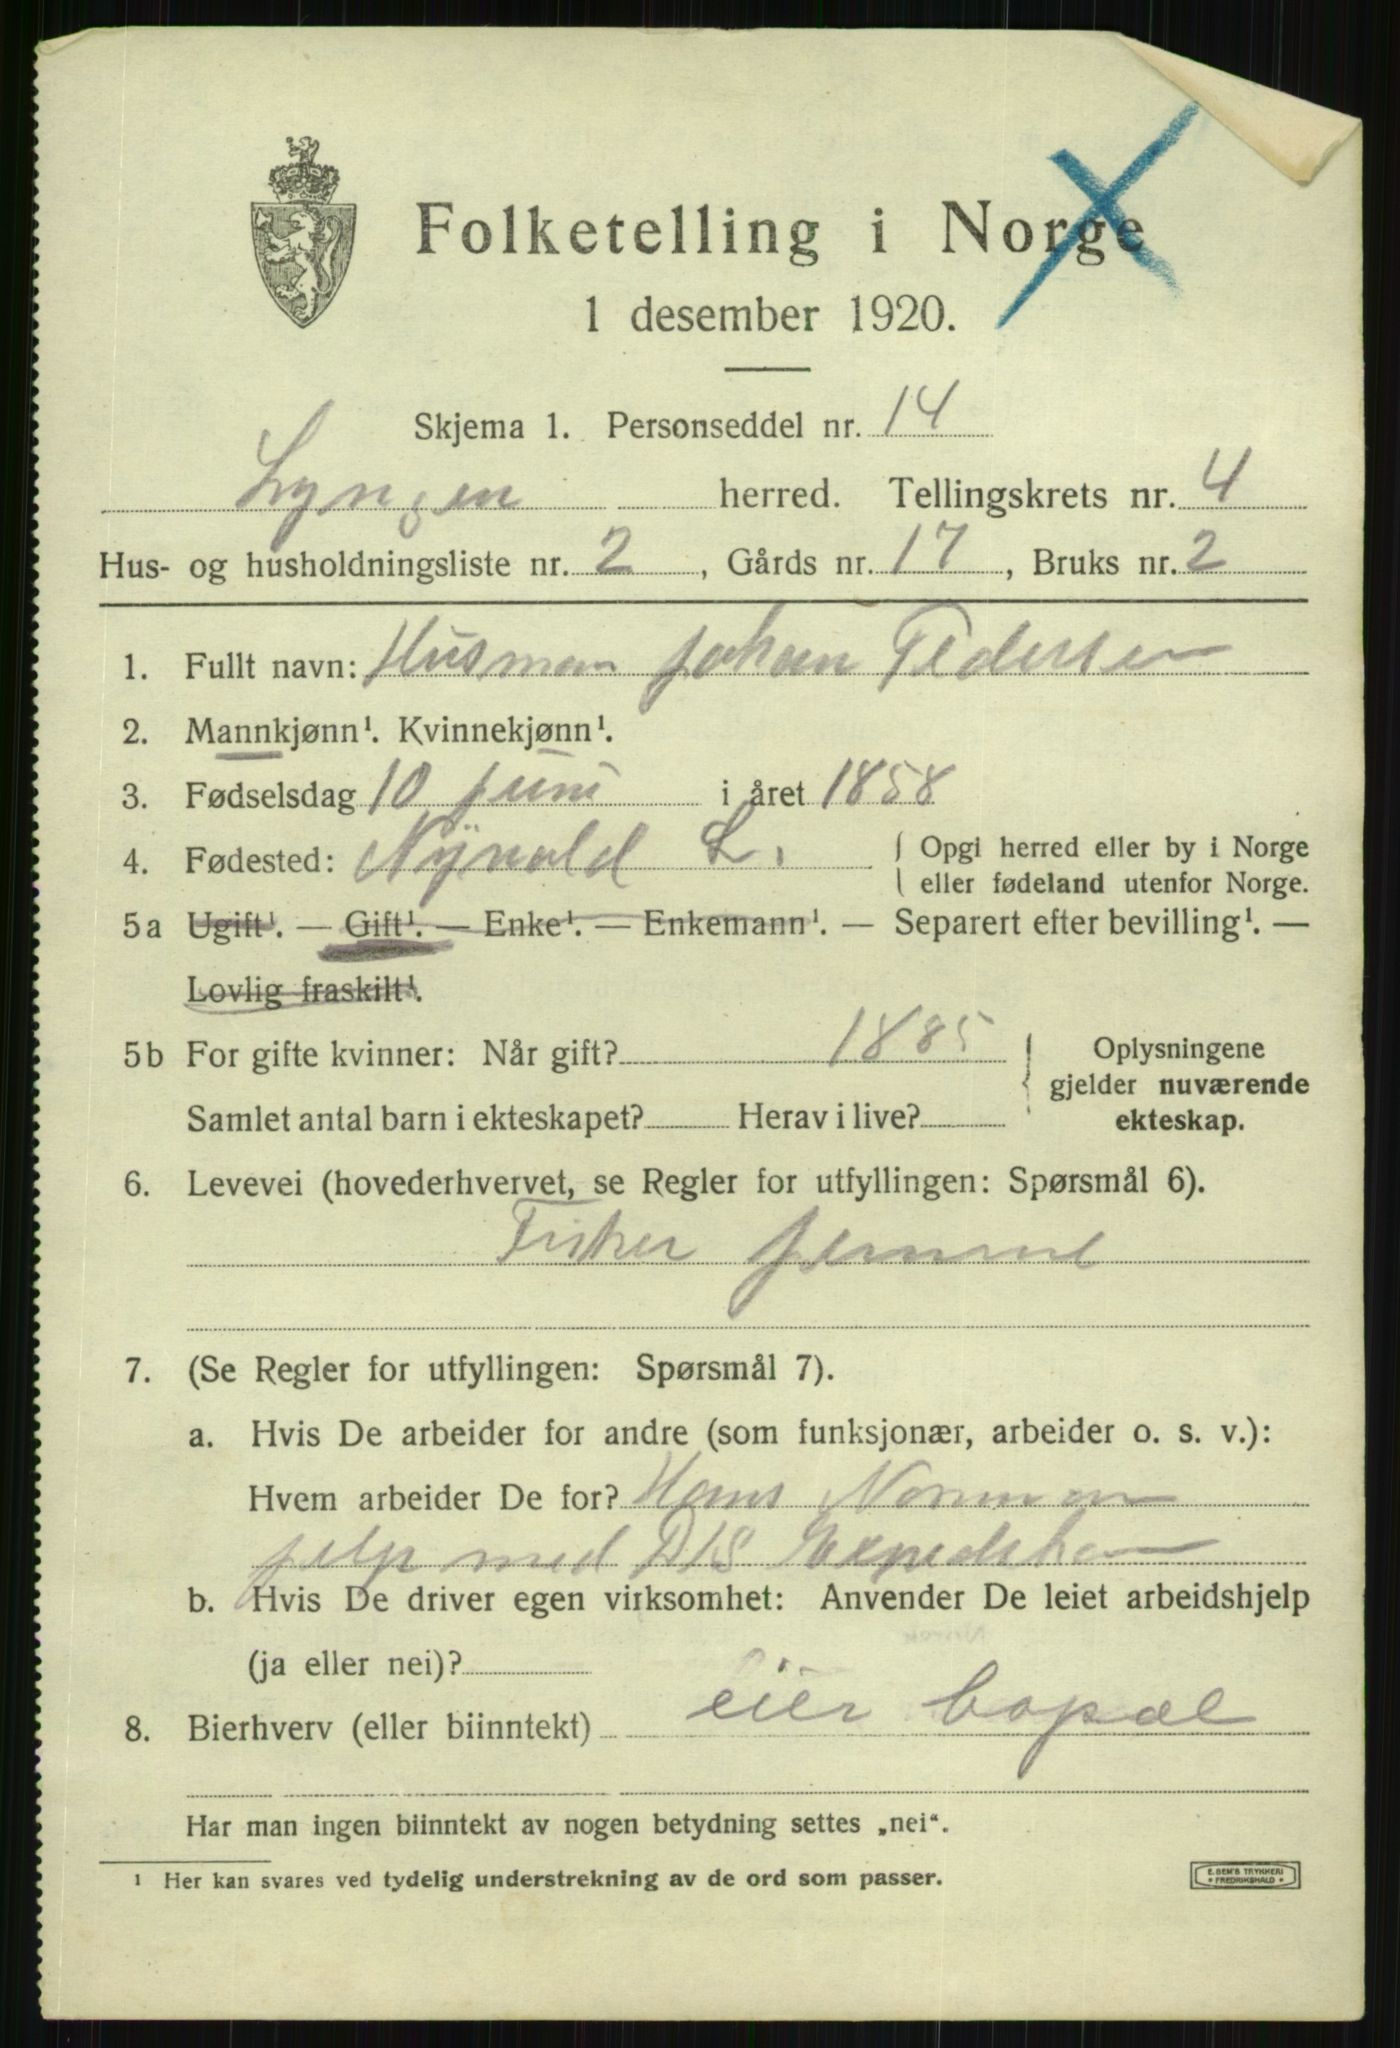 Folketelling i Norge
1 desember 1920.
Skjema 1. Personseddel nr. 14
Lyngen herred. Tellingskrets nr. 4
Hus- og husholdningsliste nr. 2, Gårds nr. 17, Bruks nr. 2
1. Fullt navn: Husman Johan Pedersen
2. Mannkjønn¹. Kvinnekjønn¹.
3. Fødselsdag 10 juni i året 1858
4. Fødested: Nyvold L. { Opgi herred eller by i Norge
eller fødeland utenfor Norge.
5a Ugift¹. — Gift¹. — Enke¹. — Enkemann¹. — Separert efter bevilling¹. —
Lovlig fraskilt¹.
5b For gifte kvinner: Når gift? 1885 } Oplysningene
gjelder nuværende
Samlet antal barn i ekteskapet? Herav i live? ekteskap.
6. Levevei (hovederhvervet, se Regler for utfyllingen: Spørsmål 6).
Fisker
7. (Se Regler for utfyllingen: Spørsmål 7).
a. Hvis De arbeider for andre (som funksjonær, arbeider o. s. v.):
Hvem arbeider De for? Hans Norman
med D/S
b. Hvis De driver egen virksomhet: Anvender De leiet arbeidshjelp
(ja eller nei)?
8. Bierhverv (eller biinntekt) eier
Har man ingen biinntekt av nogen betydning settes „nei“.
¹ Her kan svares ved tydelig understrekning av de ord som passer.
E. SEM'S TRYKKERI
* FREDRIKSHALD *